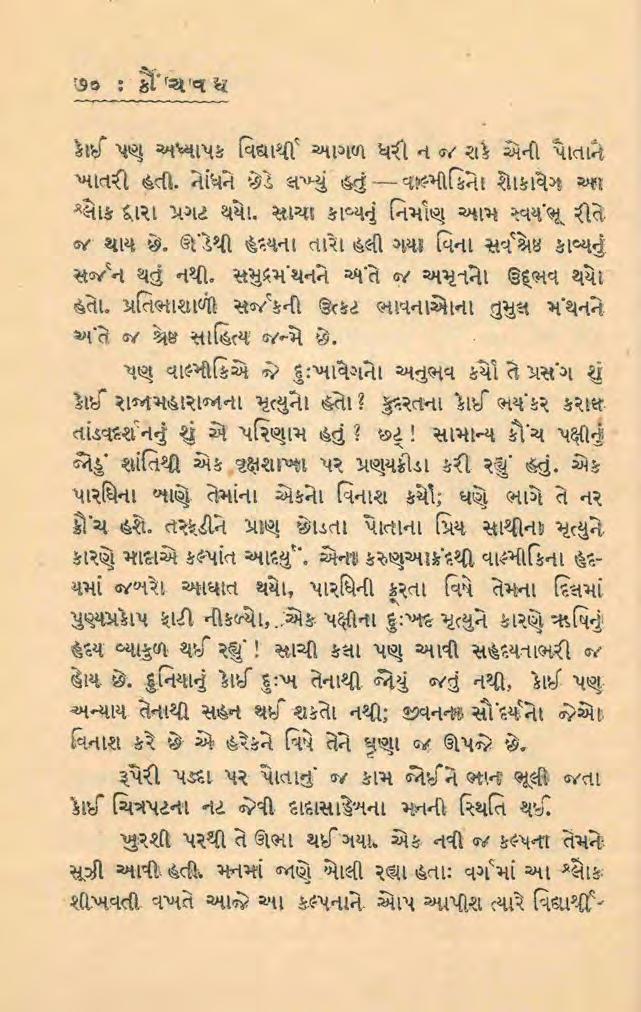 ૭૦ : ક્રૌંચવધ
કોઈ પણ અધ્યાપક વિદ્યાર્થી આગળ ધરી ન જ શકે એની પોતાને
ખાતરી હતી. નોંધને છેડે લખ્યું હતું — વાલ્મીકિનો શોકાવેગ આ
શ્લોક દ્વારા પ્રગટ થયો. સાચા કાવ્યનું નિર્માણ આમ સ્વયંભૂ રીતે
જ થાય છે. ઊંડેથી હૃદયના તારો હલી ગયા વિના સર્વશ્રેષ્ઠ કાવ્યનું
સર્જન થતું નથી. સમુદ્રમંથનને અંતે જ અમૃતનો ઉદ્દભવ થયો
હતો. પ્રતિભાશાળી સર્જકની ઉત્કટ ભાવનાઓના તુમુલ મંથનને
અંતે જ શ્રેષ્ઠ સાહિત્ય જન્મે છે.
પણ વાલ્મીકિએ જે દુઃખાવેગનો અનુભવ કર્યો તે પ્રસંગ શું
કોઈ રાજામહારાજાના મૃત્યુનો હતો? કુદરતના કોઈ ભયંકર કરાલ
તાંડવદર્શનનું શું એ પરિણામ હતું? છટ્! સામાન્ય ક્રૌંચ પક્ષીનું
જોડું શાંતિથી એક વૃક્ષશાખા પર પ્રણયક્રીડા કરી રહ્યું હતું. એક
પારધિના બાણે તેમાંના એકનો વિનાશ કર્યો; ઘણે ભાગે તે નર
ક્રૌંચ હશે. તરફડીને પ્રાણ છોડતા પોતાના પ્રિય સાથીના મૃત્યુને
કારણે માદાએ કલ્પાંત આદર્યું. એના કરુણઆક્રંદથી વાલ્મીકિના હૃદ-
યમાં જબરો આઘાત થયો, પારધિની ક્રૂરતા વિષે તેમના દિલમાં
પુણ્યપ્રકોપ ફાટી નીકળ્યો, એક પક્ષીના દુઃખદ મૃત્યુને કારણે ઋષિનું
હૃદય વ્યાકુળ થઈ રહ્યું! સાચી કલા પણ આવી સહૃદયતાભરી જ
હોય છે. દુનિયાનું કોઈ દુઃખ તેનાથી જોયું જતું નથી, કોઈ પણ
અન્યાય તેનાથી સહન થઈ શકતો નથી; જીવનના સૌંદર્યનો જેઓ
વિનાશ કરે છે એ હરેકને વિષે તેને ઘૃણા જ ઊપજે છે.
રૂપેરી પડદા પર પોતાનું જ કામ જોઈને ભાન ભૂલી જતા
કોઈ ચિત્રપટના નટ જેવી દાદાસાહેબના મનની સ્થિતિ થઈ.
ખુરશી પરથી તે ઊભા થઈ ગયા. એક નવી જ કલ્પના તેમને
સૂઝી આવી હતી. મનમાં જાણે બોલી રહ્યા હતાઃ વર્ગમાં આ શ્લોક
શીખવતી વખતે આજે આ કલ્પનાને ઓપ આપીશ ત્યારે વિદ્યાર્થી-